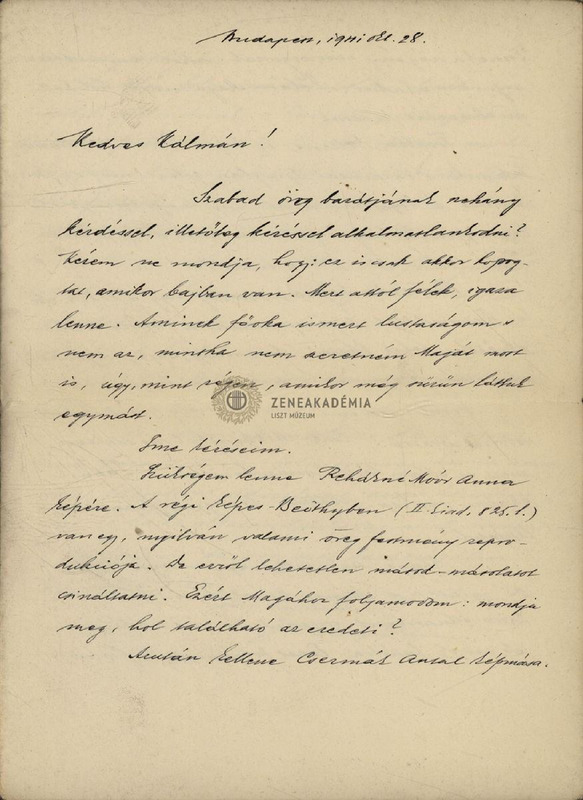 Budapest, 1941 okt. 28.
Kedves Kálmán!
Szabad öreg barátjának néhány
kérdéssel, illetőleg kéréssel alkalmatlankodni?
Kérem ne mondja, hogy: ez is csak akkor kopog-
tat, amikor bajban van. Mert attól félek, igaza
lenne. Aminek főoka ismert lustaságom s
nem az, mintha nem szeretném Magát most
is, úgy, mint régen, amikor még sűrűn láttuk
egymást.
ZENEAKADÉMIA
LISZT MÚZEUM
Ime kéréseim.
Szükségem lenne Rehákné Moór Anna
képére. A régi képes Beöthyben (II. kiad. 825. l.)
van egy, nyilván valami öreg festmény repro-
dukciója. De evvől lehetetlen másod-másolatot
csináltatni. Ezért Magához folyamodom: mondja
meg, hol található az eredeti?
Azután kellene Csermák Antal képmása.